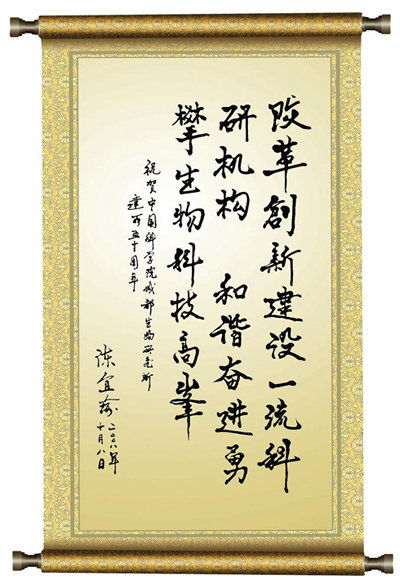 改革創新建设一流科
研机构 和谐奋进勇
攀生物科技高峯
祝贺中国科学院成都生物研究所
建所五十周年
陈宜瑜 二〇〇八年
十月八日